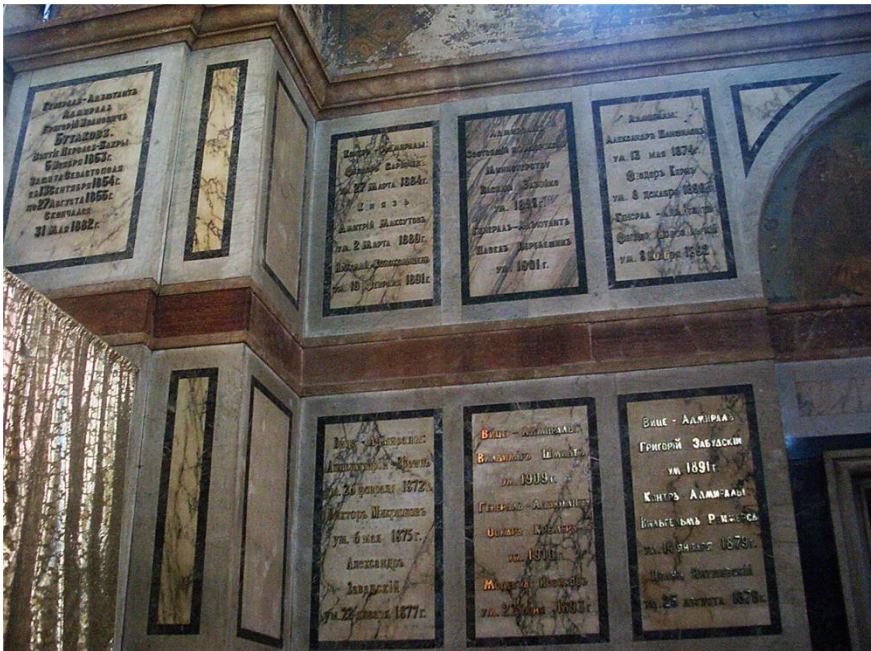 Генералъ-Адъютантъ
Адмиралъ
Григорій Ивановичъ
Бутаковъ.
Взятіе Перваз-Бахры
5 Ноября 1853г.
Защита Севастополя
съ 13 Сентября 1854г.
по 27 Августа 1855г.
Скончался
31 Мая 1882г.
Контръ-Адмиралы:
Феодоръ
ум. 27 Марта 1884г.
Князь
Дмитрій Максутовъ
ум. 2 Марта 1889г.
ум. 19 Февраля 1891г.
Адмиралы
Министерству
Василій Завойко
ум. 1898г.
Генералъ-Адъютантъ
Павелъ Перелешинъ
ум. 1901г.
Адмиралы:
Александръ Панфиловъ
ум. 13 мая 1874г.
Феодоръ Кернъ
ум. 8 декабря
Генералъ-Адъютантъ
ум. 8 1892
Вице-Адмиралы:
ум. 26 февраля 1872г.
Викторъ Микрюковъ
ум. 6 мая 1875г.
Александръ
Завадскій
ум. 22 января 1877г.
Вице-Адмиралы
Владиміръ Шмидтъ
ум. 1909г.
Генералъ-Адъютантъ
Оскаръ Кремеръ
ум. 1910г.
ум. 2
Вице-Адмиралъ
Григорій Забудскій
ум. 1891г.
Контръ Адмиралы
Вильгельмъ
ум. 14 января 1879г.
25 августа 1878г.